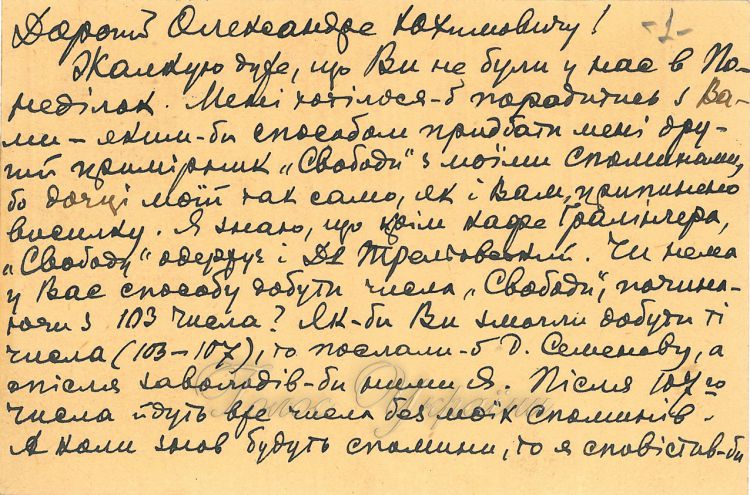 Дорогий Олександре Юхимовичу!
-1-
Жалкую дуже, що Ви не були у нас в По-
неділок. Мені хотілося-б порадитись з Ва-
ми – яким-би способом придбати мені дру-
гий примірник „Свободи" з моїми споминами,
бо дочці моїй так само, як і Вам, припинено
висилку. Я знаю, що крім кафе Гралінгера,
„Свободу" одержує і Др Трембовський. Чи нема
у Вас способу добути числа „Свободи", почина-
ючи з 103 числа? Як-би Ви змогли добути ті
числа (103–107), то послали-б Д. Семенову, а
опісля заволодів-би ними я. Після 107го
числа йдуть вже числа без моїх споминів.
А коли знов будуть спомини, то я сповістив-би
Голос України